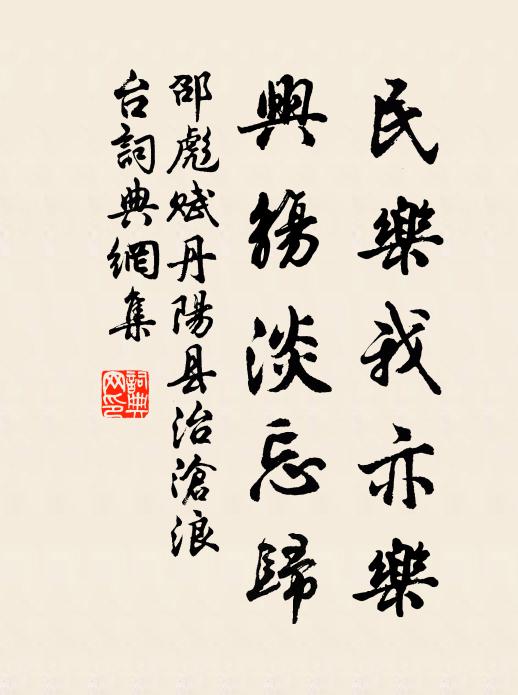 民樂我亦樂
興觴淡忘歸
邵彪賦丹陽县治滄浪
台詞典網集
詞典
网印